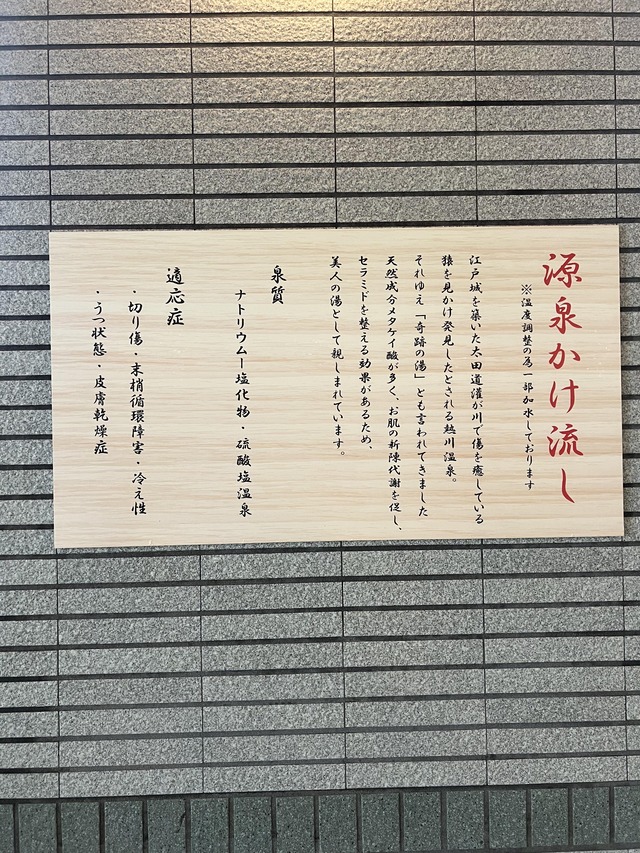 源泉かけ流し
※温度調整の為一部加水しております
江戸城を築いた太田道灌が川で傷を癒している
猿を見かけ発見したとされる熱川温泉。
それゆえ「奇跡の湯」とも言われてきました
天然成分メタケイ酸が多く、お肌の新陳代謝を促し、
セラミドを整える効果があるため、
美人の湯として親しまれています。
泉質
ナトリウムー塩化物・硫酸塩温泉
適応症
・切り傷・末梢循環障害・冷え性
・うつ状態・皮膚乾燥症